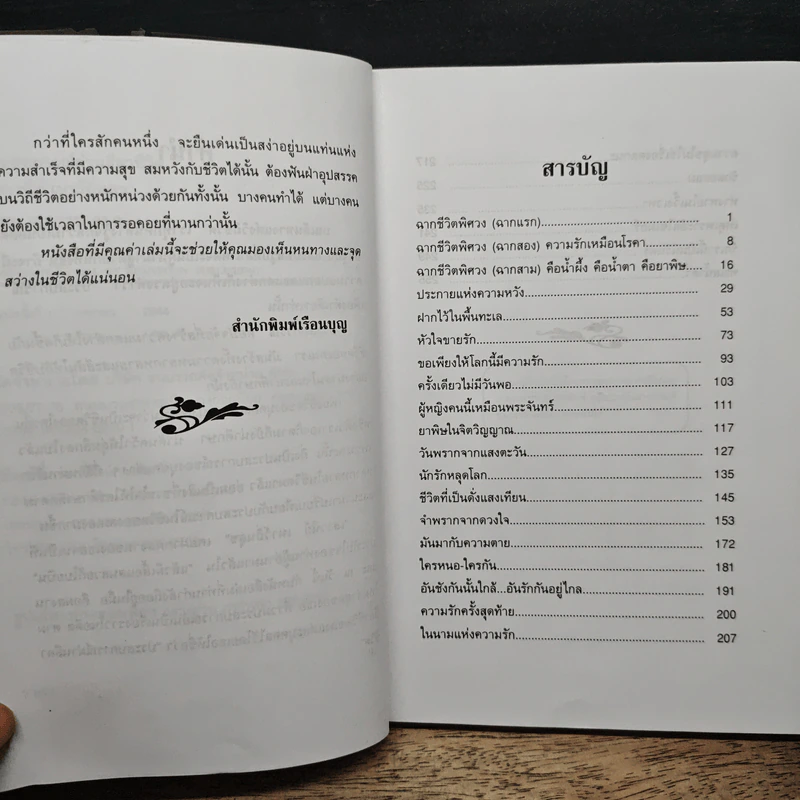 กว่าที่ใครสักคนหนึ่ง จะยืนเด่นเป็นสง่าอยู่บนแท่นแห่ง
ความสำเร็จที่มีความสุข สมหวังกับชีวิตได้นั้น ต้องฟันฝ่าอุปสรรค
บนวิถีชีวิตอย่างหนักหน่วงด้วยกันทั้งนั้น บางคนทำได้ แต่บางคน
ยังต้องใช้เวลาในการรอคอยที่นานกว่านั้น
หนังสือที่มีคุณค่าเล่มนี้จะช่วยให้คุณมองเห็นหนทางและจุด
สว่างในชีวิตได้แน่นอน
สำนักพิมพ์เรือนบุญ
สารบัญ
ฉากชีวิตพิศวง (ฉากแรก) 1
ฉากชีวิตพิศวง (ฉากสอง) ความรักเหมือนโรคา 8
ฉากชีวิตพิศวง (ฉากสาม) คือน้ำผึ้ง คือน้ำตา คือยาพิษ 16
ประกายแห่งความหวัง 29
ฝากไว้ในพื้นทะเล 53
หัวใจขายรัก 73
ขอเพียงให้โลกนี้มีความรัก 93
ครั้งเดียวไม่มีวันพอ 103
ผู้หญิงคนนี้เหมือนพระจันทร์ 111
ยาพิษในจิตวิญญาณ 117
วันพรากจากแสงตะวัน 127
นักรักหลุดโลก 135
ชีวิตที่เป็นดั่งแสงเทียน 145
จำพรากจากดวงใจ 153
มันมากับความตาย 172
ใครหนอ-ใครกัน 181
อันชังกันนั้นใกล้...อันรักกันอยู่ไกล 191
ความรักครั้งสุดท้าย 200
ในนามแห่งความรัก 207